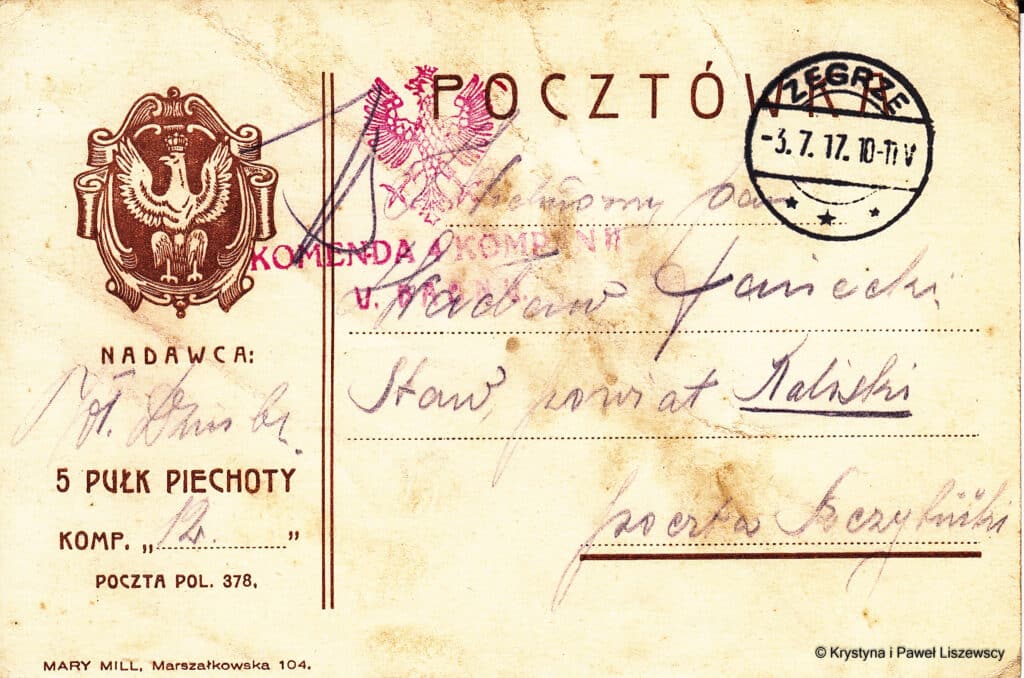 POCZTÓWKA
ZEGRZE
-3.7.17. 10-11 V
KOMENDA 4 KOMPANII
Wielmożny Pan
Wacław Janecki
Staw, powiat Kaliski
poczta
NADAWCA:
5 PUŁK PIECHOTY
KOMP. „12."
POCZTA POL. 378.
MARY MILL, Marszałkowska 104.
© Krystyna i Paweł Liszewscy